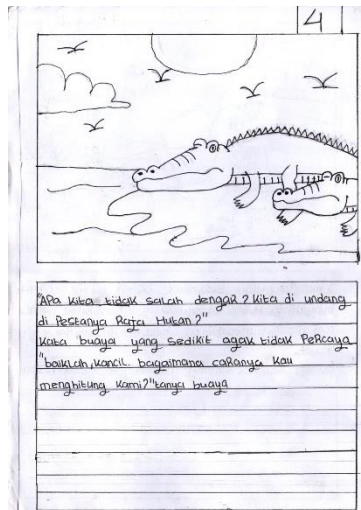 4
"APa kita tidak salah dengar? Kita di undang
di Pestanya Raja Hutan?"
Kata buaya yang sedikit agak tidak Percaya
"baiklah, kancil. bagaimana caranya kau
menghitung kami?" tanya buaya